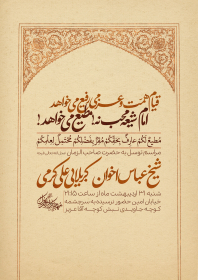 قیام همت و عزمی رفیع می‌خواهد
امام شیعه محب نه، مطیع می‌خواهد!
مُطیعٌ لَکُم عارِفٌ بِحَقِّکُم مُقِرٌّ بِفَضلِکُم مُحتَمِلٌ لِعِلمِکُم
مراسم توسل به حضرت صاحب الزمان
شیخ عباس اخوان کربلایی علی کرمی
شنبه ۳۱ اردیبهشت ماه از ساعت ۲۱:۱۵
خیابان امین حضور نرسیده به سرچشمه
کوچه جاویدی نبش کوچه آقا عزیز